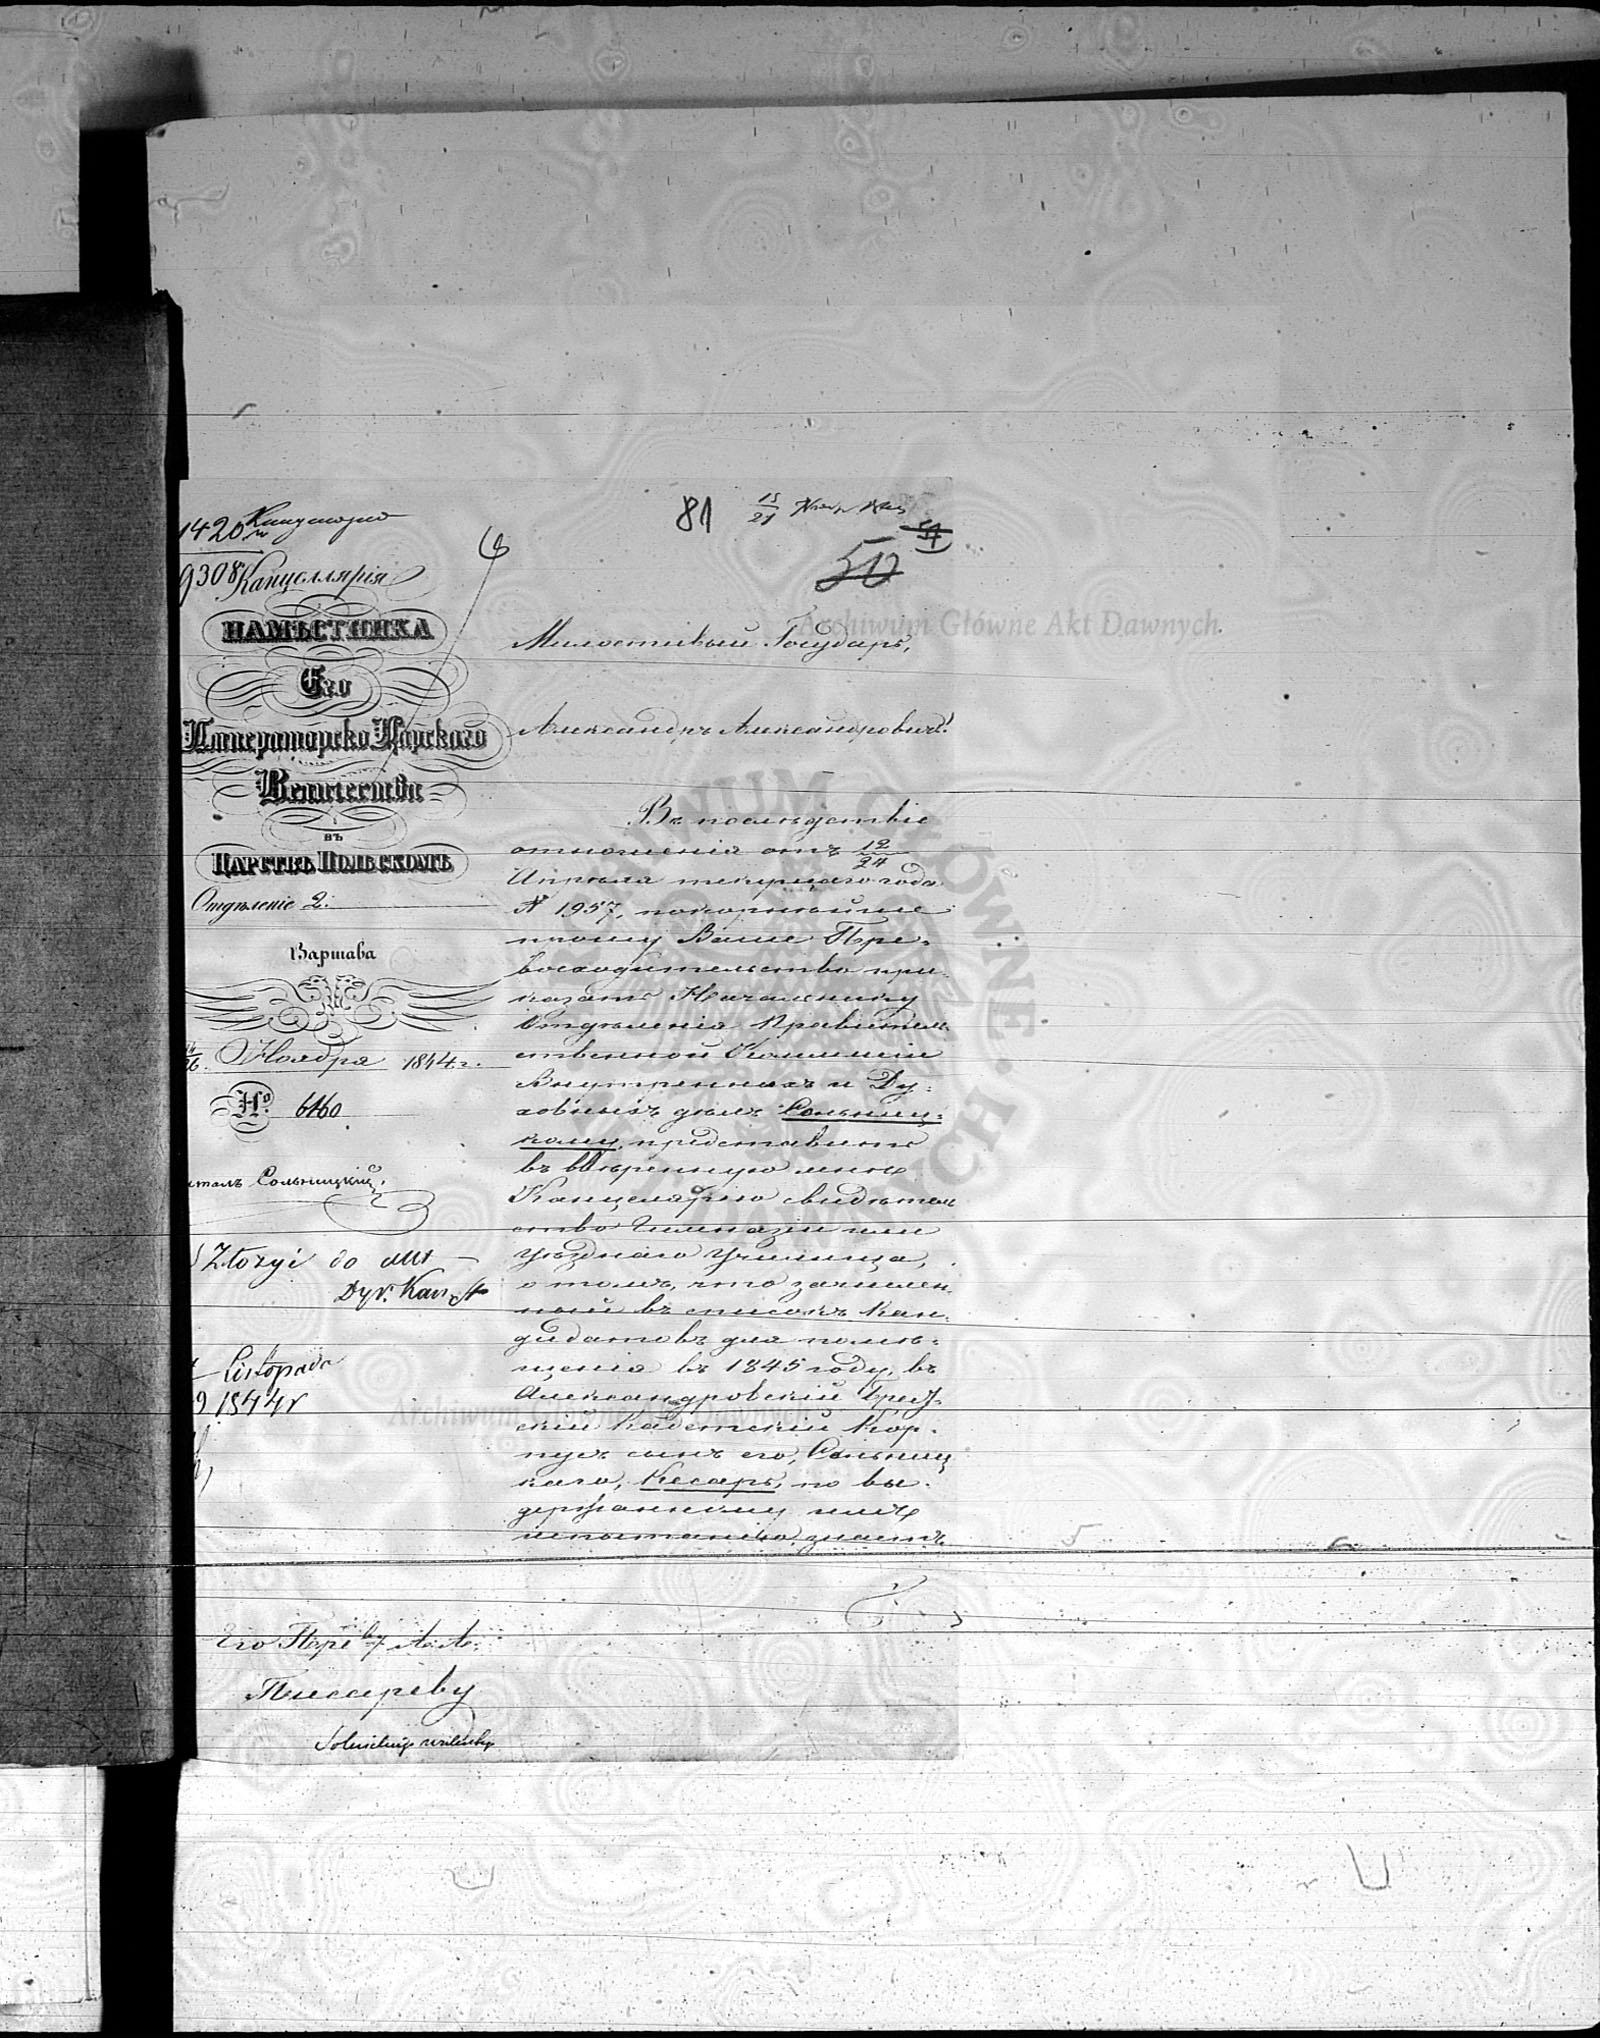 81
1420
9308 Канцеллярія
50
НАМѢСТНИКА
Его
Императорско Царскаго
Величества
въ
ЦАРСТВѢ ПОЛЬСКОМЪ
Отдѣленіе 2.
Варшава
Ноября 1844 г.
№ 6160
читалъ Сольницкій.
Złożyć do akt
Dyr. Kanc.
Listopada
9 1844 r
Милостивый Государь,
Александръ Александровичъ!
Въ послѣдствіе
отношенія отъ 12/24
Апрѣля текущаго года
№ 1957, покорнѣйше
прошу Ваше Пре-
восходительство при-
казать Начальнику
Отдѣленія Правитель-
ственной Коммисіи
Внутреннихъ и Ду-
ховныхъ дѣлъ Сольниц-
кому, представить
въ ввѣренную мнѣ
Канцелярію свидѣтель-
ство Гимназіи или
уѣзднаго Училища,
о томъ, что зачислен-
ный въ списокъ кан-
дидатовъ для помѣ-
щенія въ 1845 году, въ
Александровскій Брест-
скій Кадетскій Кор-
пусъ сынъ его, Сольниц-
каго, Кесарь, по вы-
держанному имъ
испытанію, знаетъ
Его Прев-ву А. А.
Писареву
Archiwum Główne Akt Dawnych
Archiwum Główne Akt Dawnych